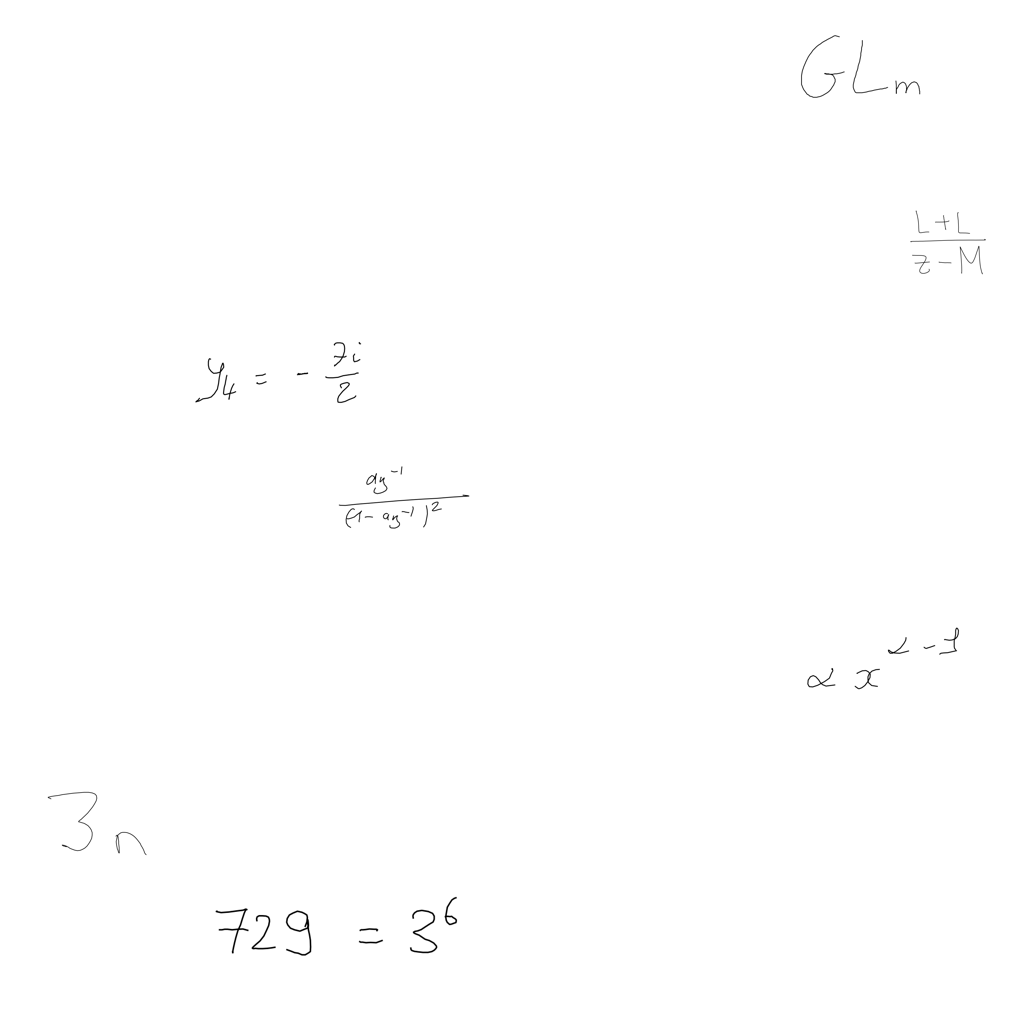 GL_m
\frac{L+L}{z-M}
y_4 = -\frac{7i}{2}
\frac{az^{-1}}{(1-az^{-1})^2}
\alpha x^{\alpha-1}
3n
729 = 3^6